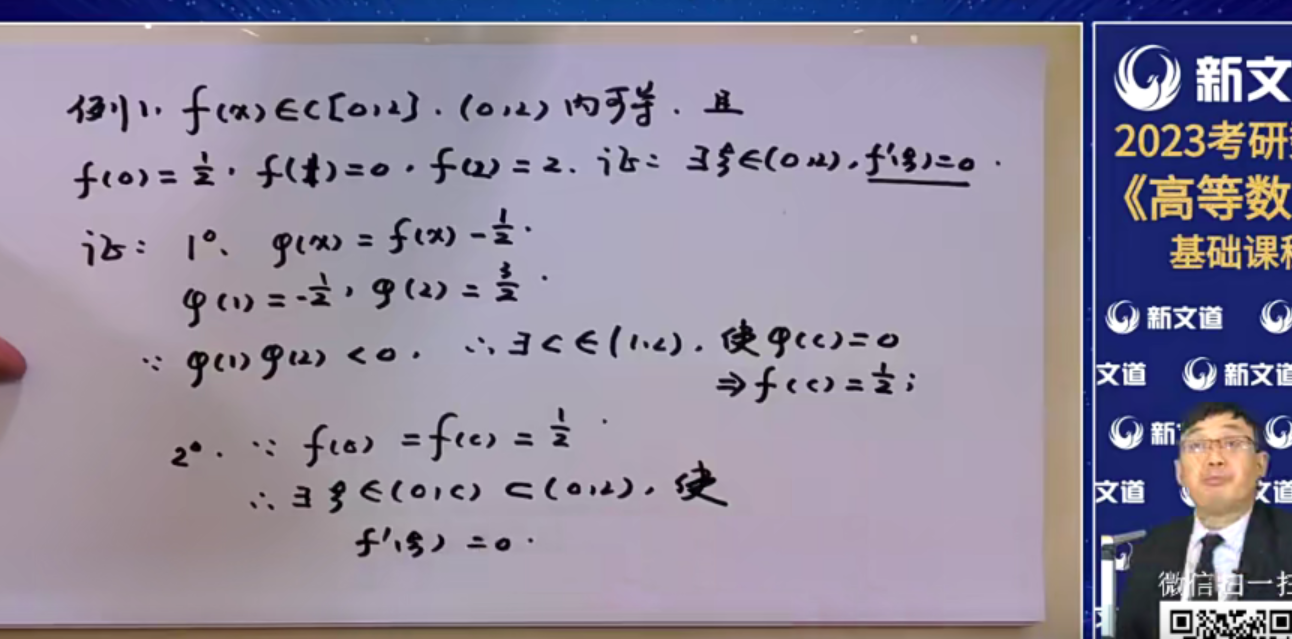 例1. f(x)∈C[0,2]. (0,2)内可导. 且
f(0)=1/2. f(1)=0. f(2)=2. 证: ∃ξ∈(0,2), f'(ξ)=0.
证: 1°. φ(x)=f(x)-1/2.
φ(1)=-1/2, φ(2)=3/2.
∵ φ(1)φ(2)<0. ∴∃c∈(1,2), 使φ(c)=0
⇒f(c)=1/2;
2°. ∵ f(0)=f(c)=1/2.
∴∃ξ∈(0,c)⊂(0,2), 使
f'(ξ)=0.
新文
2023考研
《高等数
基础课程
新文道
文道
新文道
新
文道
文道
微信扫一扫